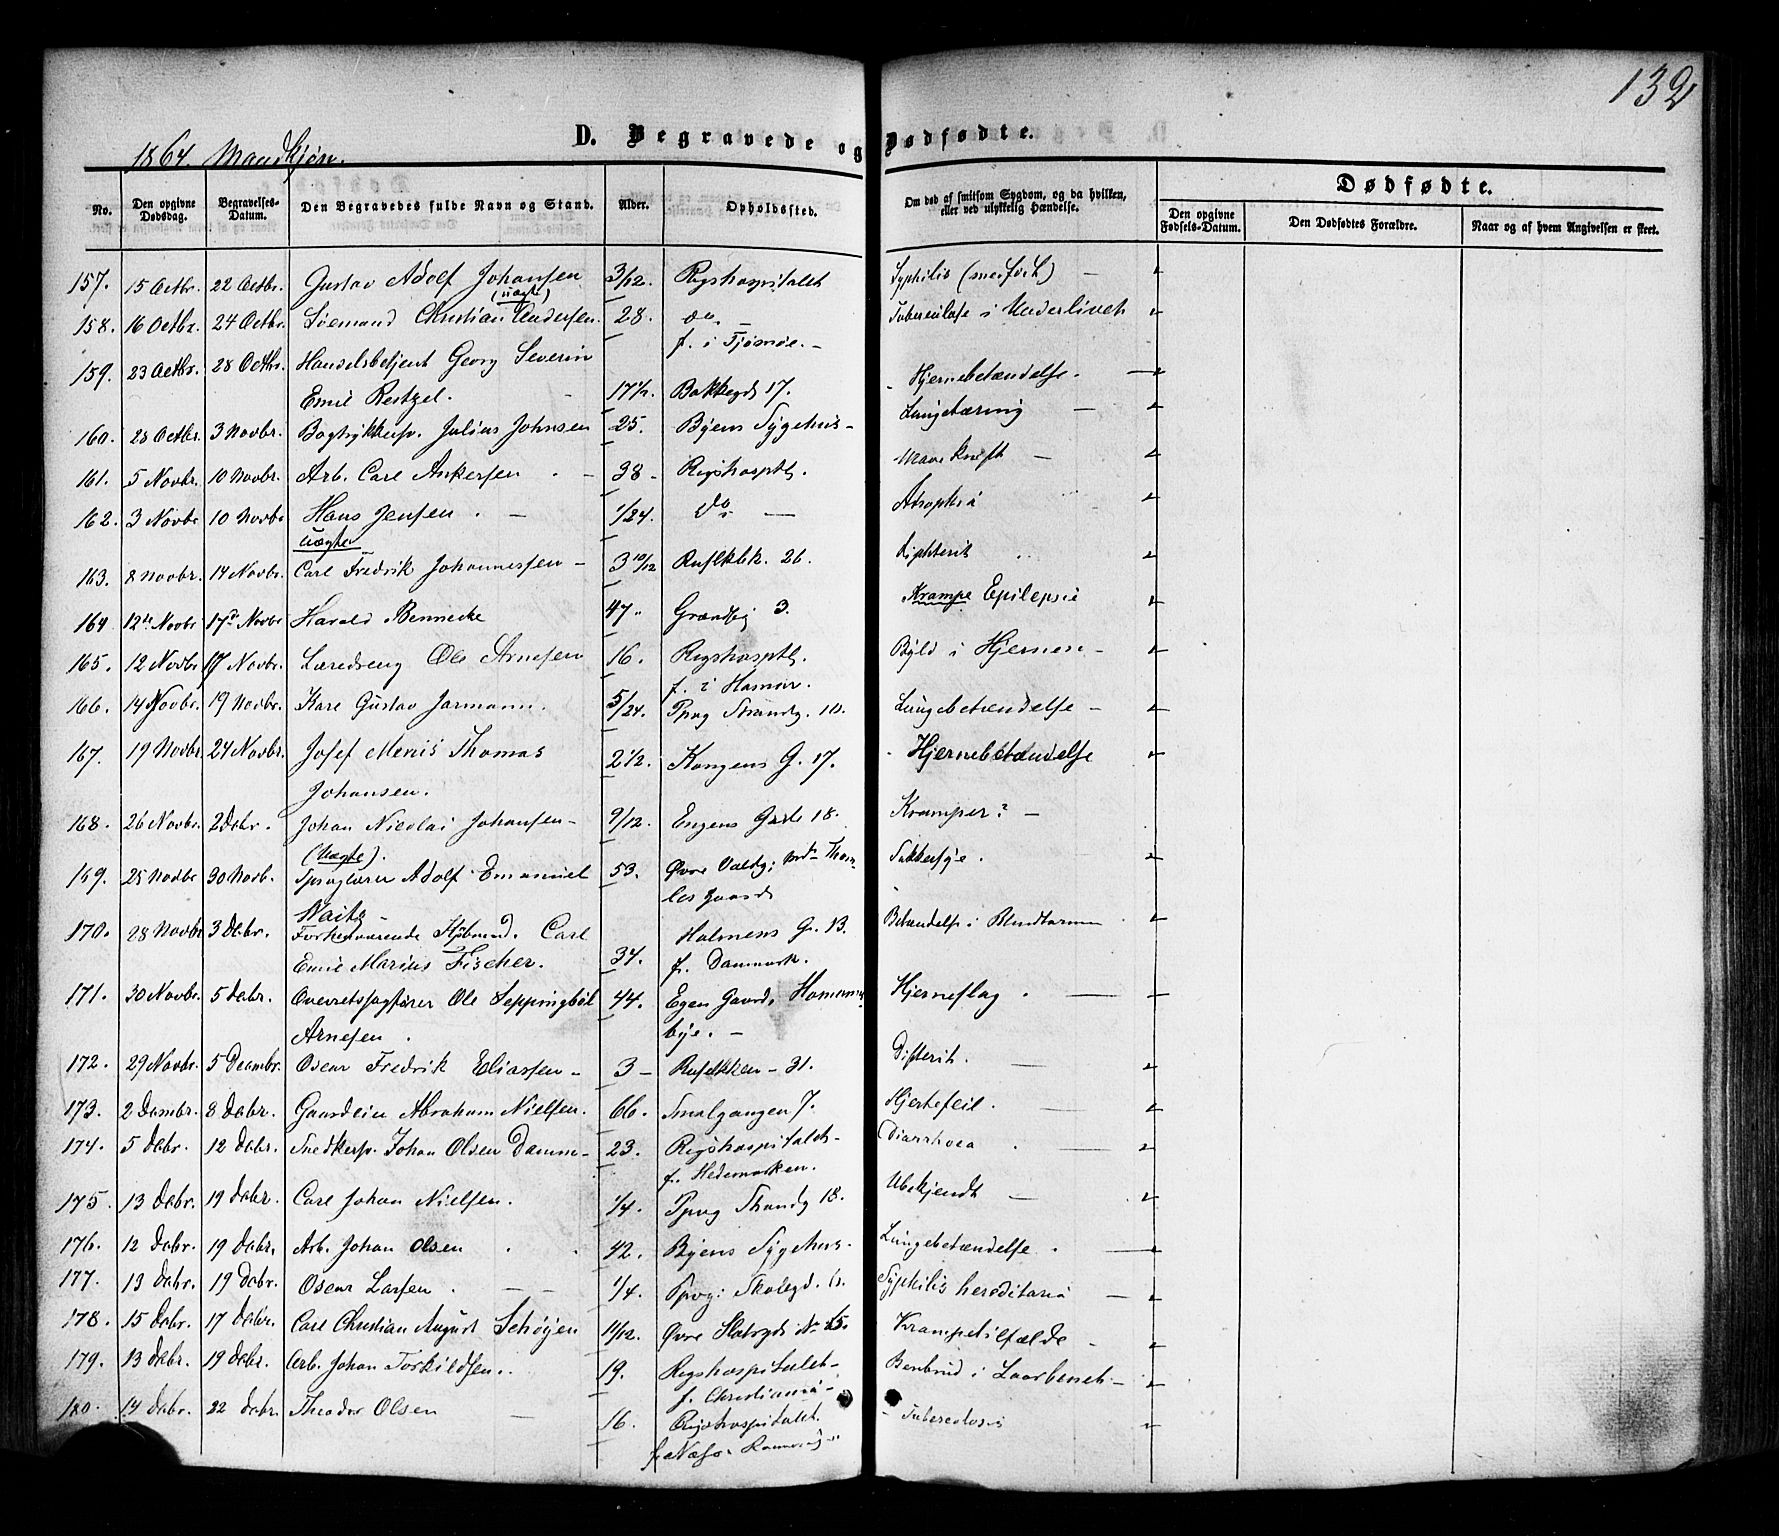 132
D. Begravede og Dødfødte.
1864. Mandkjøn.
Dødfødte.
No. Den opgivne Dødsdag. Begravelses-Datum. Den Begravedes fulde Navn og Stand. Alder. Opholdssted. Om død af smitsom Sygdom, og da hvilken, eller ved ulykkelig Hændelse. Den opgivne Fødsels-Datum. Den Dødfødtes Forældre. Naar og af hvem Angivelsen er skeet.
157. 15 Octbr. 22 Octbr. Gustav Adolf Johansen 3/12. Rigshospitalet Syphilis (medfødt) –
(uægte)
158. 16 Octbr. 24 Octbr. Søemand Christian Andersen. 28. do – Tuberculose i Underlivet
f. i Tjømøe. –
159. 23 Octbr. 28 Octbr. Handelsbetjent Georg Severin
Emil Restzel. 17 1/2. Bakkegd 17. Hjernebetændelse.
160. 28 Octbr. 3 Novbr. Bogtrykkersv. Julius Johnsen 25. Byens Sygehus – Lungetæring –
161. 5 Novbr. 10 Novbr. Arb. Carl Ankersen – 38 – Rigshosptl. Mave kræft –
162. 3 Novbr 10 Novbr Hans Jensen. – 1/24. do – Atrophia
uægte
163. 8 Novbr. 14 Novbr. Carl Fredrik Johannessen – 3 10/12 Rusl.kbk. 26. Diphterit
164 12te Novbr 17d Novbr Harald Bennecke 47. Grændsg 3. Krampe Epilepsie
165. 12 Novbr 17 Novbr. Læredreng Ole Arnesen 16. Rigshosptl. Byld i Hjernen –
f. i Hamar.
166. 14 Novbr. 19 Novbr. Kare Gustav Jarmann. 5/24. Ppvg Strandg. 10. Lungebetændelse –
167. 19 Novbr. 24 Novbr. Josef Menis Thomas 2 1/2. Kongens G. 17. Hjernebetændelse
Johansen.
168. 26 Novbr. 2 Dcbr. Johan Nicolai Johansen – 9/12. Engens Gade 18. Kramper? –
(Uægte).
169. 25 Novbr 30 Novb. Sproglærer Adolf Emanuel 53. Øvre Voldg: Sukkersyge.
Waitz – gaard
170. 28 Novbr 3 Dcbr. Forhenværende Hdlmand. Carl Holmens G. 13. Betændelse i Blindtarmen
Emil Marius Fischer. 34. f. Danmark.
171. 30 Novbr. 5 Dcbr. Overretssagfører Ole Seppingbøl 44. Egen Gaard. Hjerneslag
Arnesen. bye. –
172. 29 Novbr. 5 Decmbr. Oscar Fredrik Eliassen – 3 – Ruseløkken – 31. Difterit.
173. 2 Decmbr. 8 Dcbr. Gaardeier Abraham Nielsen. 66. Smalgangen 7. Hjertefeil.
174. 5 Dcbr. 12 Dcbr. Snedkersv. Johan Olsen Damm – 23. Rigshospitalet – Diarrhoea
f. Hedemarken.
175. 13 Dcbr. 19 Dcbr. Carl Johan Nielsen. 1/4. Ppvg Strandg 18. Ubekjendt –
176. 12 Dcbr. 19 Dcbr. Arb. Johan Olsen 42. Byens Sygehus – Lungebetændelse.
177. 13 Dcbr. 19 Dcbr. Oscar Larsen. – 1/4. Ppvg: Skolegd. 6. Syphilis hereditaria –
178. 15 Dcbr. 17 Dcbr. Carl Christian August Schøyen 11/12. Øvre Slotsgd No 25. Krampetilfælde –
179. 13 Dcbr. 19 Dcbr. Arb. Johan Torkildsen. 19. Rigshospitalet – Benbrud i Laarbenet –
f. Christiania –
180. 14 Dcbr. 22 Dcbr. Theodor Olsen – 16. Rigshospitalet. Tuberculosis
f. Næs